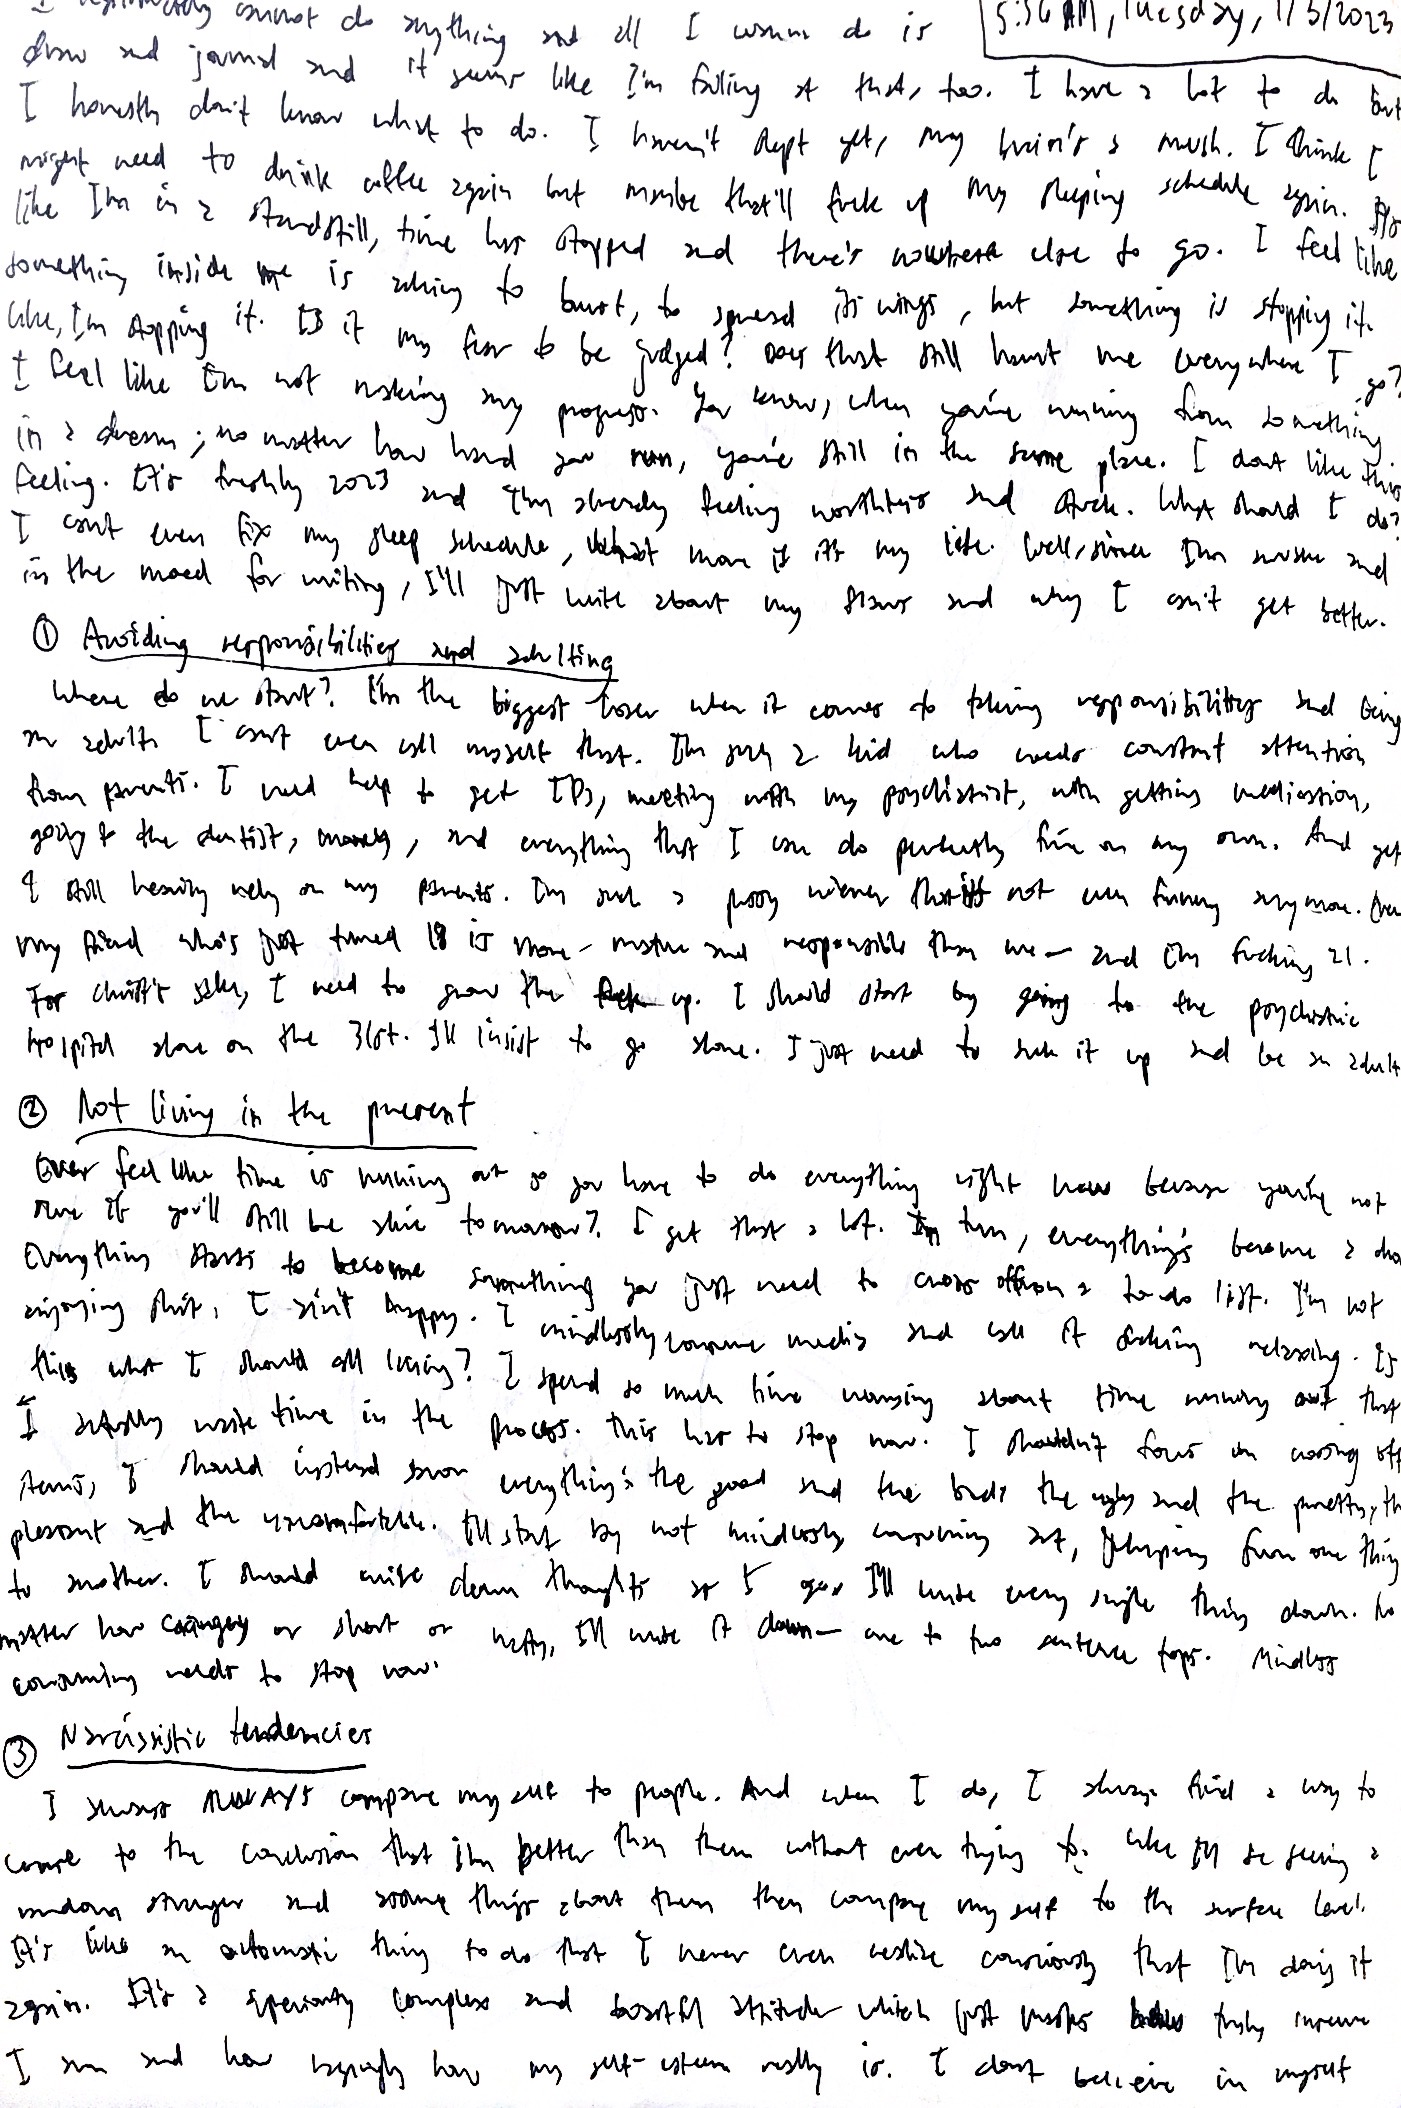 5:56 AM, Tuesday, 1/3/2023
I legitimately cannot do anything and all I wanna do is
draw and journal and it seems like I'm failing at that, too. I have a lot to do but
I honestly don't know what to do. I haven't slept yet, my brain's a mush. I think I
might need to drink coffee again but maybe that'll fuck up my sleeping schedule again. It's
like I'm in a standstill, time has stopped and there's nowhere else to go. I feel like
something inside me is aching to burst, to spread its wings, but something is stopping it.
like, I'm stopping it. Is it my fear to be judged? Does that still haunt me everywhere I go?
I feel like I'm not making any progress. You know, when you're running from something
in a dream; no matter how hard you run, you're still in the same place. I don't like this
feeling. It's freshly 2023 and I'm already feeling worthless and stuck. What should I do?
I can't even fix my sleep schedule, what more if it's my life. Well, since I'm awake and
in the mood for writing, I'll just write about my flaws and why I can't get better.
① Avoiding responsibilities and adulting
Where do we start? I'm the biggest loser when it comes to taking responsibilities and being
an adult. I can't even call myself that. I'm such a kid who needs constant attention
from parents. I need help to get IDs, meeting with my psychiatrist, with getting medication,
going to the dentist, and everything that I can do perfectly fine on my own. And yet
I still heavily rely on my parents. I'm such a pussy wiener that it's not even funny anymore. Even
my friend who's just turned 18 is more mature and responsible than me — and I'm fucking 21.
For christ's sake, I need to grow the fuck up. I should start by going to the psychiatric
hospital alone on the 31st. I'll insist to go alone. I just need to suck it up and be an adult
② Not living in the present
Ever feel like time is running out so you have to do everything right now because you're not
sure if you'll still be alive tomorrow? I get that a lot. In turn, everything's become a cho
Everything starts to become something you just need to cross off from a to do list. I'm not
enjoying shit, I ain't happy. I mindlessly consume media and call it fucking relaxing. Is
this what I should call living? I spend so much time worrying about time running out that
I actually waste time in the process. This has to stop now. I shouldn't focus on crossing off
items, I should instead savor everything: the good and the bad, the ugly and the pretty, th
pleasant and the uncomfortable. I'll start by not mindlessly consuming art, jumping from one thing
to another. I should write down thoughts as I go. I'll write every single thing down. No
matter how cringey or short or hefty, I'll write it down — one to two sentence tops. Mindless
consuming needs to stop now.
③ Narcissistic tendencies
I always ALWAYS compare myself to people. And when I do, I always find a way to
come to the conclusion that I'm better than them without even trying to. Like I'll be seeing a
random stranger and some things about them then compare myself to the surface level.
It's like an automatic thing to do that I never even realize consciously that I'm doing it
again. It's a superiority complex and boastful attitude which just masks how truly insecure
I am and how low my self-esteem really is. I don't believe in myself